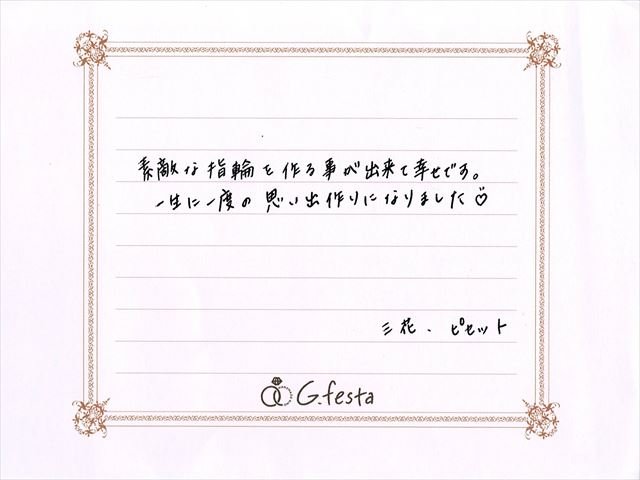 素敵な指輪を作る事が出来て幸せです。
一生に一度の思い出作りになりました♡
三花、ピセット
G.festa